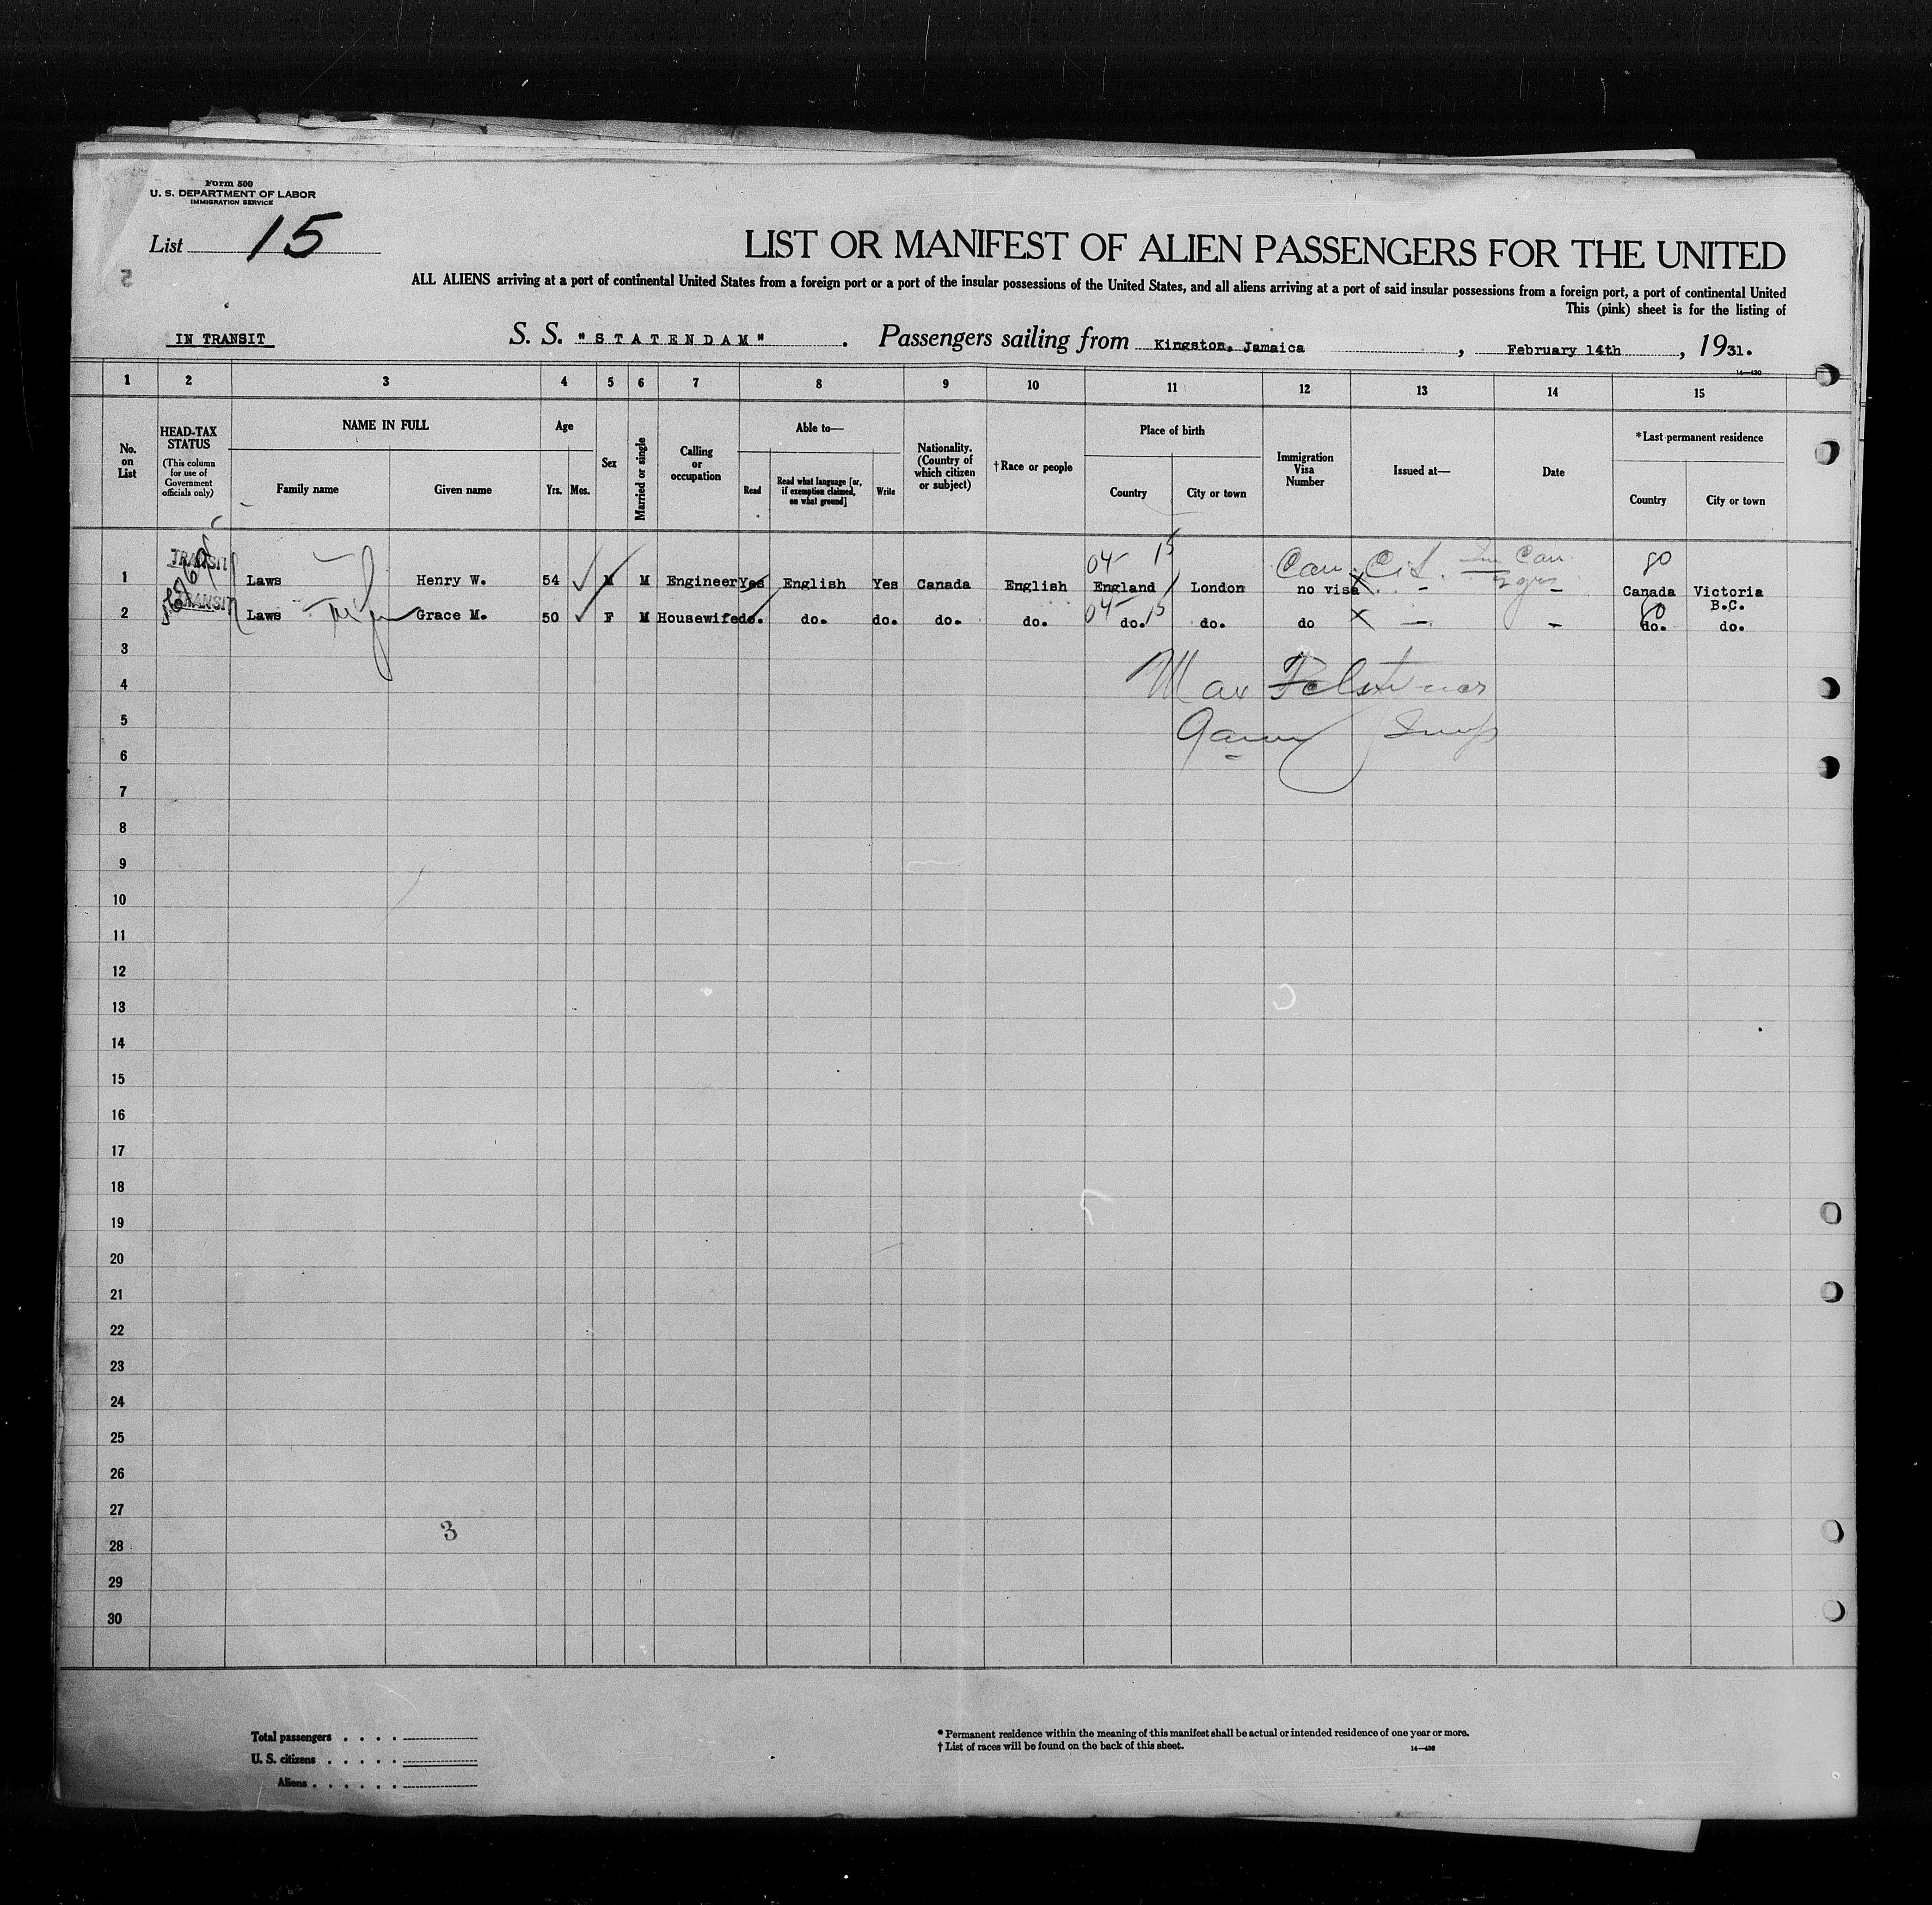 Form 500
U. S. DEPARTMENT OF LABOR
IMMIGRATION SERVICE
List 15
5
LIST OR MANIFEST OF ALIEN PASSENGERS FOR THE UNITED
ALL ALIENS arriving at a port of continental United States from a foreign port or a port of the insular possessions of the United States, and all aliens arriving at a port of said insular possessions from a foreign port, a port of continental United
This (pink) sheet is for the listing of
IN TRANSIT S. S. "STATENDAM". Passengers sailing from Kingston, Jamaica, February 14th, 1931.
14—430
1 2 3 4 5 6 7 8 9 10 11 12 13 14 15
No. on List
HEAD-TAX STATUS (This column for use of Government officials only)
NAME IN FULL
Family name Given name
Age
Yrs. Mos.
Sex
Married or single
Calling or occupation
Able to—
Read
Read what language [or, if exemption claimed, on what ground]
Write
Nationality. (Country of which citizen or subject)
†Race or people
Place of birth
Country City or town
Immigration Visa Number
Issued at—
Date
*Last permanent residence
Country City or town
04 15 Can. Cit. Can. 80
1 TRANSIT Laws Henry W. 54 M M Engineer Yes English Yes Canada English England London no visa - - Canada Victoria B.C.
04 15 80
2 TRANSIT Laws Grace M. 50 F M Housewife do. do. do. do. do. do. do. do — - do. do.
3
4 Max
5
6
7
8
9
10
11
12
13
14
15
16
17
18
19
20
21
22
23
24
25
26
27
3
28
29
30
Total passengers . . . .
U. S. citizens . . . . .
Aliens . . . . . .
* Permanent residence within the meaning of this manifest shall be actual or intended residence of one year or more.
† List of races will be found on the back of this sheet. 14—430